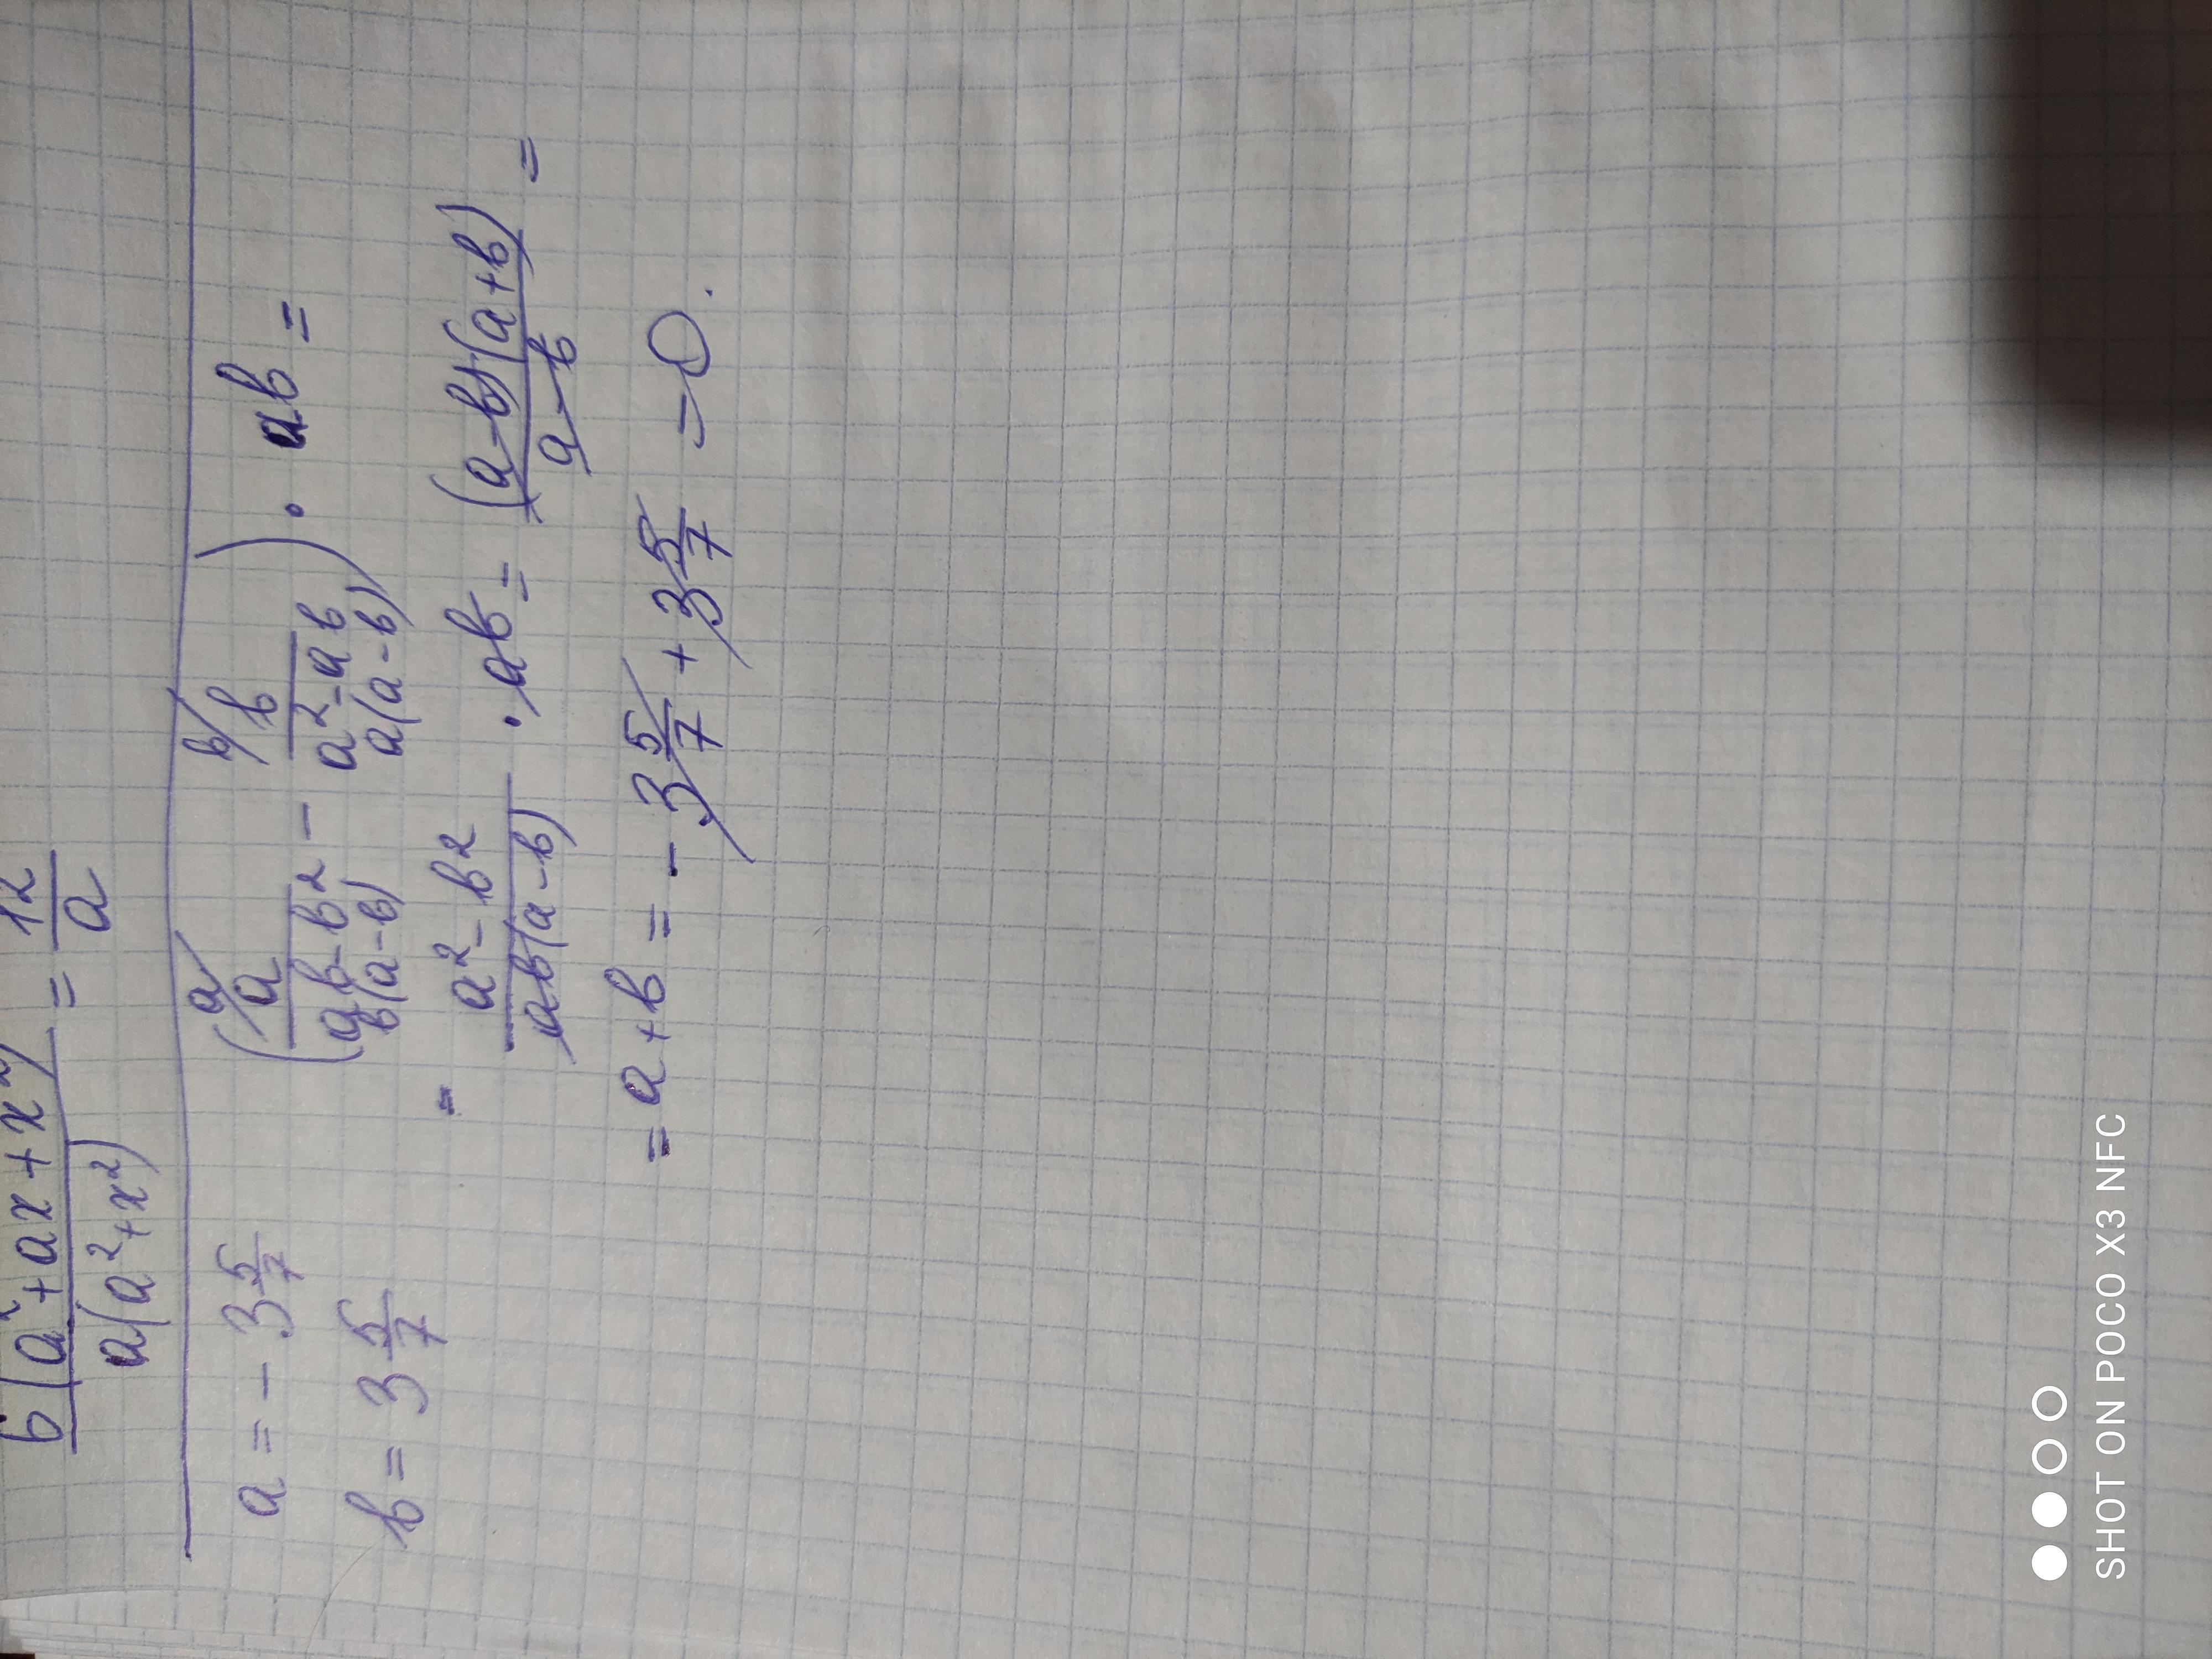 6(a²+ax+x²)/a(a²+x²) = 12/a
a = -3 5/7 (a/ a/ab-b² - b/ b/a²-ab) · ab =
b(a-b) a(a-b)
b = 3 5/7
= a²-b²/ab(a-b) · ab = (a-b)(a+b)/a-b =
= a+b = -3 5/7 + 3 5/7 = 0.
SHOT ON POCO X3 NFC